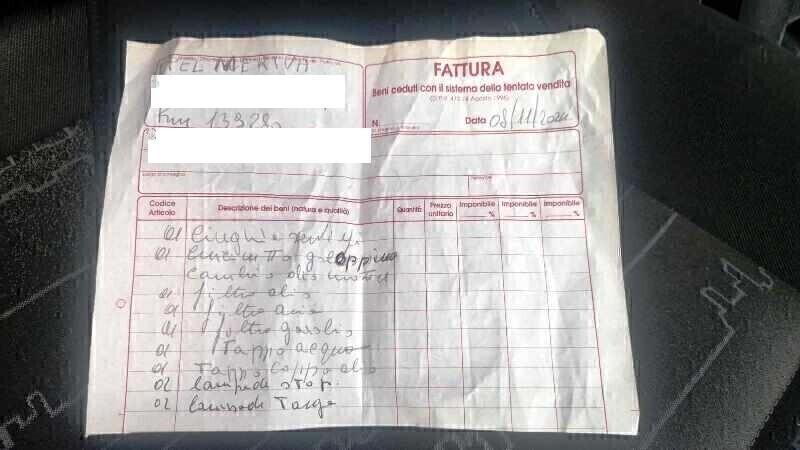 OPEL MERIVA
FATTURA
Beni ceduti con il sistema della tentata vendita
N.
Data 08/11/2021
Km 13928
Codice Articolo
Descrizione dei beni (natura e qualità)
Quantità
Prezzo unitario
Imponibile %
Imponibile %
Imponibile %
01 Cinghia
01
cambio olio motore
01 filtro olio
01 filtro aria
01 filtro gasolio
01 Tappo acqua
01 Tappo coppa olio
02 lampade stop.
02 lampade Targa